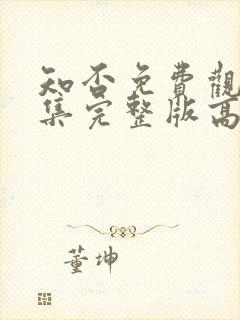 知否免費觀
集完整版高
董坤